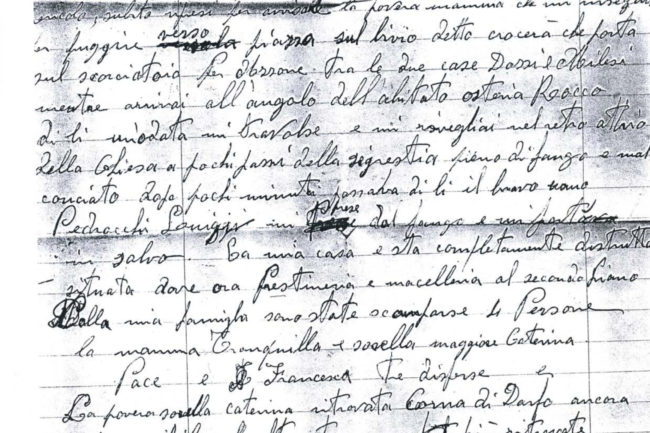 subito ripresi per andare la povera mamma che mi
per fuggire verso piazza sul bivio detto crocera che porta
sul scorciatora per Azzone tra le due case Dossi e Albisi
mentre arrivai all'angolo dell'abitato osteria Rocco
di li undata mi travolse e mi risvegliai nel retro
della Chiesa a pochi passi della segrestia pieno di fango e mal
conciato dopo pochi minuti passava di li il bravo uomo
Pedrocchi Louiggi mi prese dal fango e mi
in salvo. La mia casa e sta completamente distrutta
situata dove ora Prestineria e macelleria al secondo piano
Dalla mia famiglia sono state scomparse 4 Persone
la mamma Tranquilla e sorella maggiore Caterina.
Pace e Francesca Tre disperse e
La povera sorella caterina ritrovata Corna di Darfo ancora